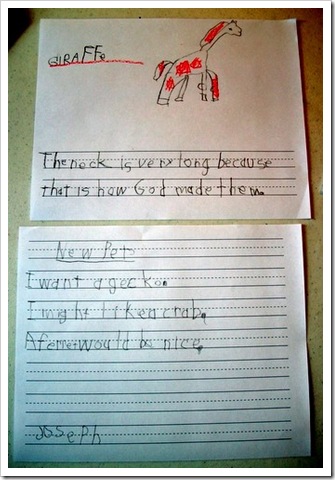 GIRAFFe
The neck is very long because
that is how God made them.
New Pets
I want a gecko.
I might like a crab.
A ferret would be nice.
Joseph